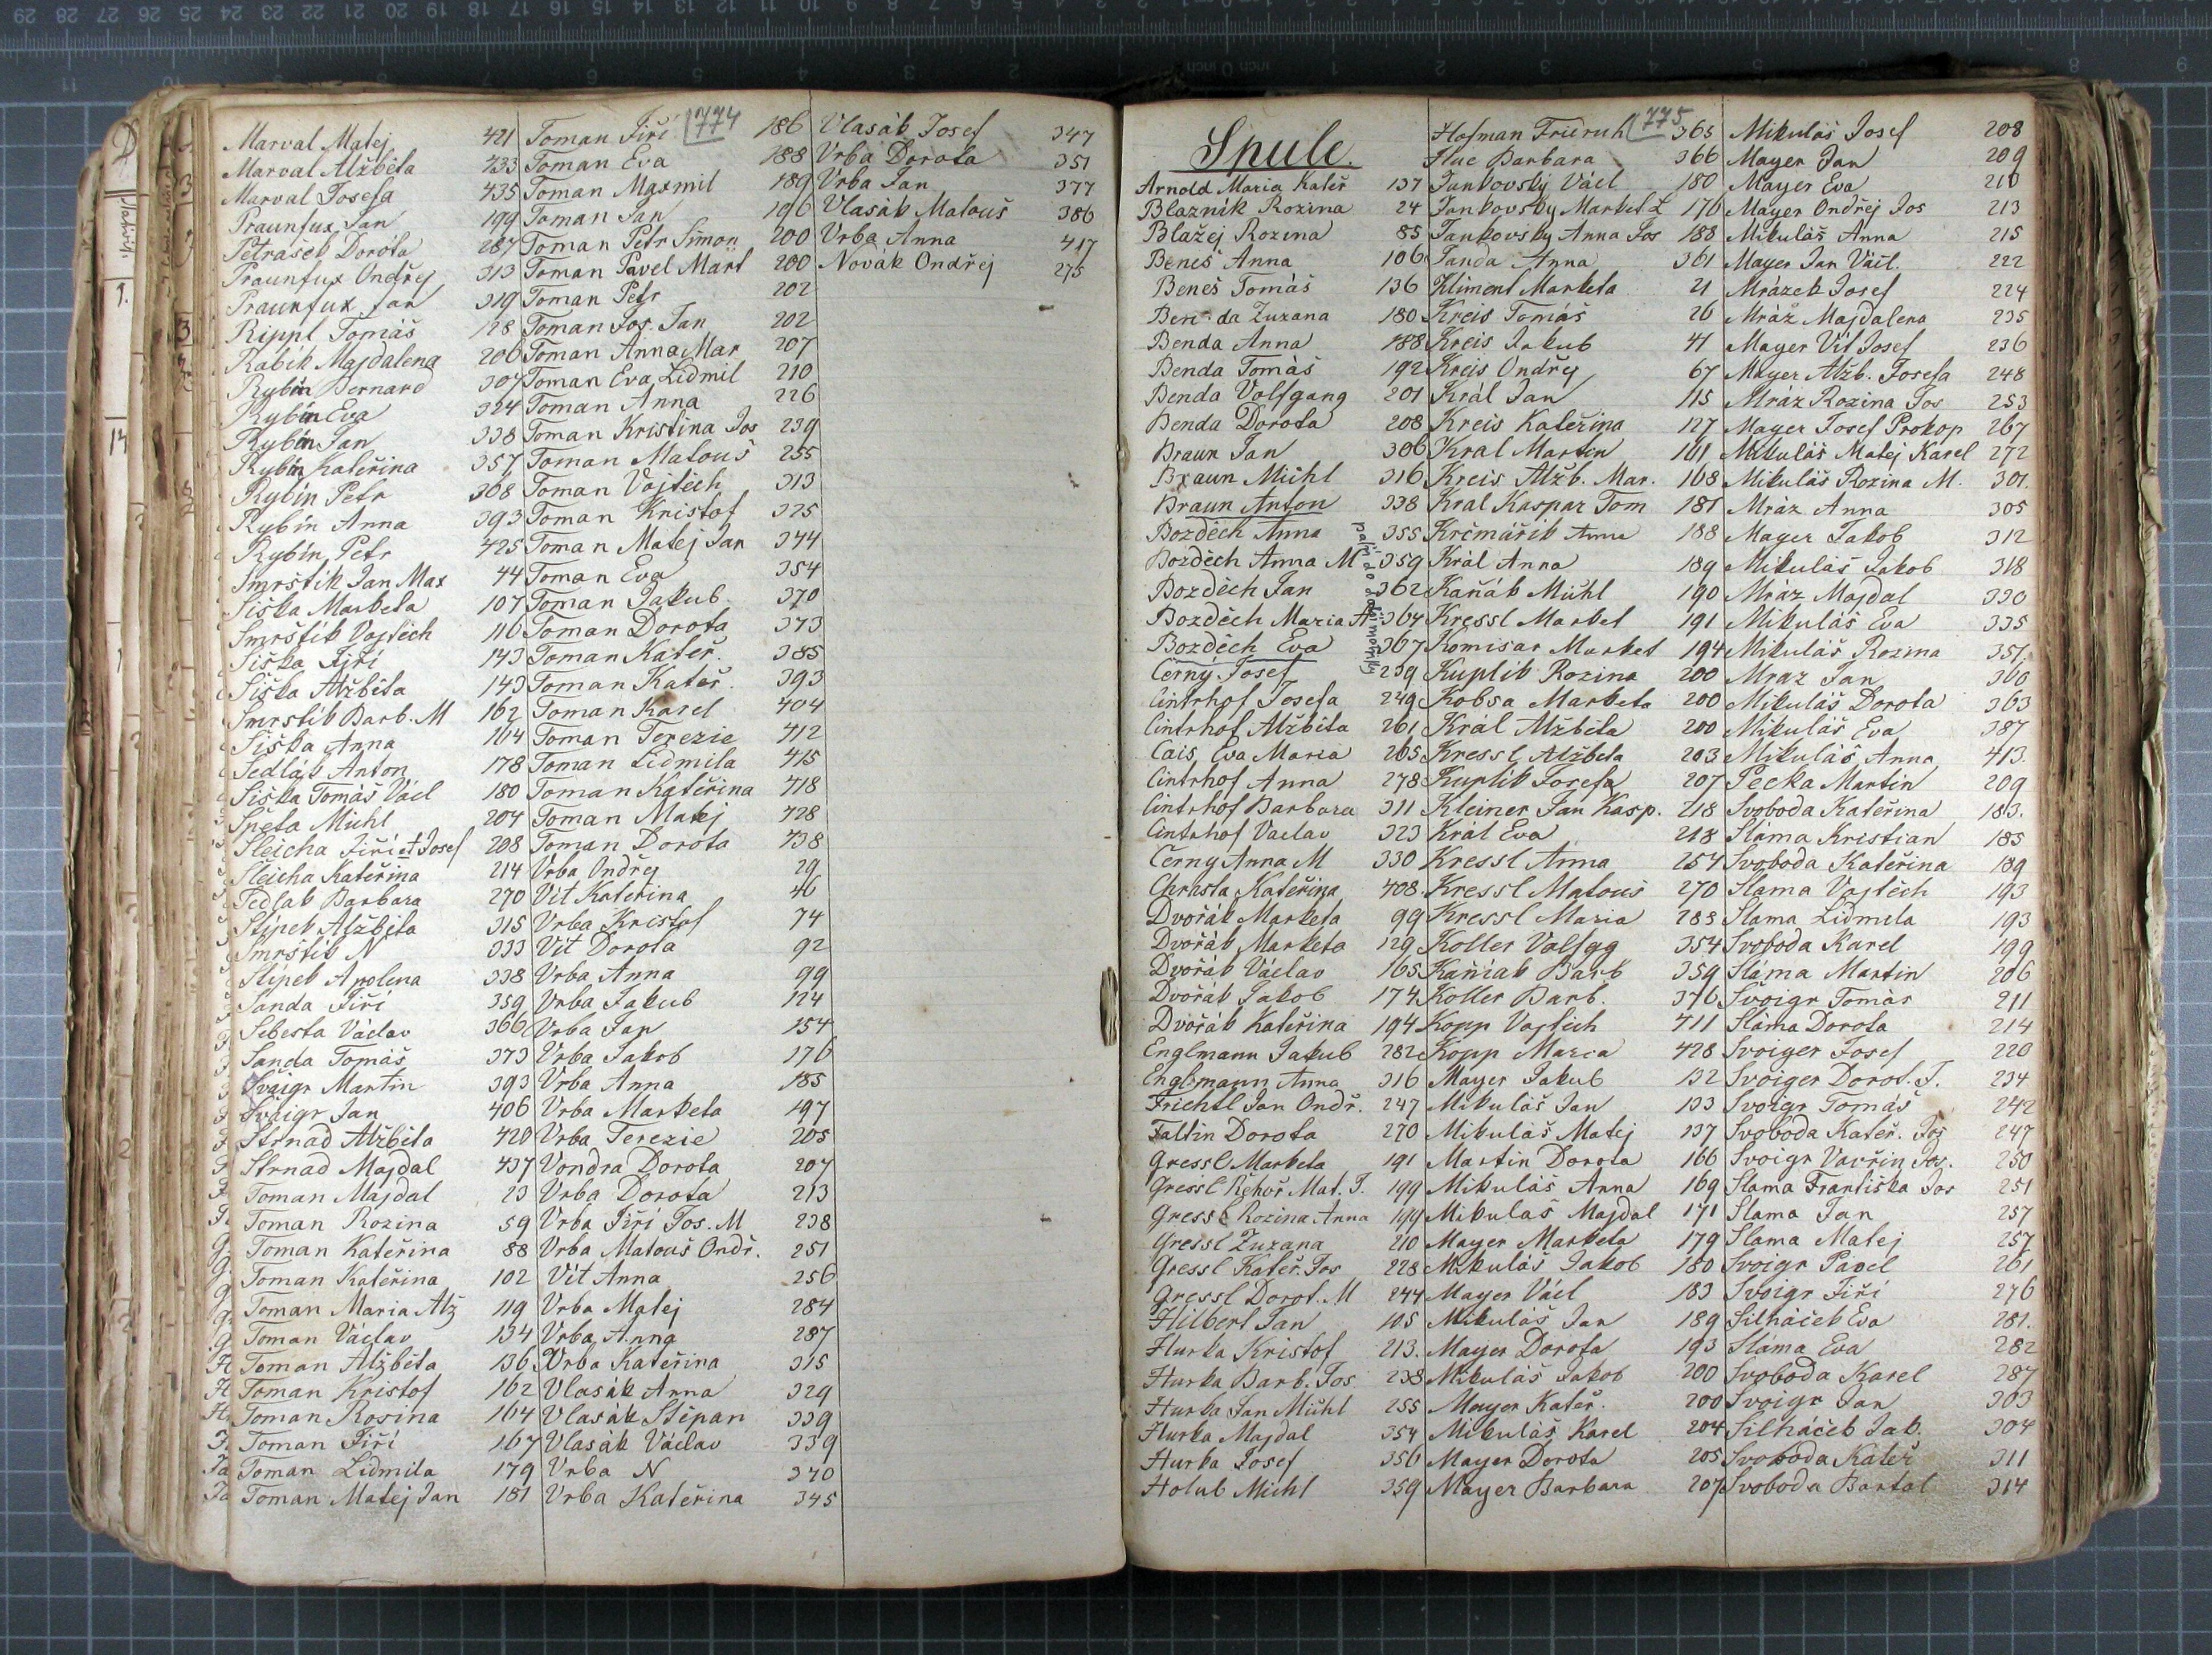 774
Marval Matej 421
Marval Alžběta 433
Marval Josefa 435
Praunfux Jan 199
Petrášek Dorota 287
Praunfux Ondřej 313
Praunfux Jan 319
Rippl Tomáš 128
Rabik Majdalena 206
Rybín Bernard 307
Rybín Eva 324
Rybín Jan 338
Rybín Kateřina 357
Rybín Petr 368
Rybín Anna 393
Rybín Petr 425
Smrštík Jan Max 44
Šiška Marketa 107
Smrštík Vojtěch 116
Šiška Jiří 143
Šiška Alžběta 143
Smrštík Barb. M 162
Šiška Anna 164
Sedlák Anton 178
Šiška Tomáš Václ 180
Špeta Michl 204
Šleicha Jiří et Josef 208
Šleicha Kateřina 214
Sedlak Barbara 270
Štípek Alžběta 315
Smrštík N 333
Štípek Apolena 338
Šanda Jiří 359
Šebesta Václav 366
Šanda Tomáš 373
Švoigr Martin 393
Švoigr Jan 406
Strnad Alžběta 420
Strnad Majdal 437
Toman Majdal 23
Toman Rozina 59
Toman Kateřina 88
Toman Kateřina 102
Toman Maria Alž 119
Toman Václav 134
Toman Alžběta 136
Toman Kristof 162
Toman Rosina 164
Toman Jiří 167
Toman Lidmila 179
Toman Matej Jan 181
Toman Jiří 186
Toman Eva 188
Toman Maxmil 189
Toman Jan 196
Toman Petr Šimon 200
Toman Pavel Mart 200
Toman Petr 202
Toman Jos. Jan 202
Toman Anna Mar 207
Toman Eva Lidmil 210
Toman Anna 226
Toman Kristina Jos 239
Toman Matouš 255
Toman Vojtěch 313
Toman Kristof 325
Toman Matej Jan 344
Toman Eva 354
Toman Jakub 370
Toman Dorota 373
Toman Kateř. 385
Toman Kateř. 393
Toman Karel 404
Toman Terezie 412
Toman Lidmila 415
Toman Kateřina 418
Toman Matej 428
Toman Dorota 438
Vrba Ondřej 29
Vít Kateřina 46
Vrba Kristof 74
Vít Dorota 92
Vrba Anna 99
Vrba Jakub 124
Vrba Jan 154
Vrba Jakob 176
Vrba Anna 185
Vrba Marketa 197
Vrba Terezie 205
Vondra Dorota 207
Vrba Dorota 213
Vrba Jiří Jos. M 238
Vrba Matouš Ondř. 251
Vít Anna 256
Vrba Matej 284
Vrba Anna 287
Vrba Kateřina 315
Vlasák Anna 329
Vlasák Štěpan 339
Vlasák Václav 339
Vrba N 340
Vrba Kateřina 345
Vlasák Josef 347
Vrba Dorota 351
Vrba Jan 377
Vlasák Matouš 386
Vrba Anna 417
Novák Ondřej 275
775
Spule.
Arnold Maria Kateř 137
Blaznik Rozina 24
Blažej Rozina 85
Beneš Anna 106
Beneš Tomáš 136
Benda Zuzana 180
Benda Anna 188
Benda Tomáš 192
Benda Volfgang 201
Benda Dorota 208
Braun Jan 306
Braun Michl 316
Braun Anton 338
Bozděch Anna 355
Bozděch Anna M 359
Bozděch Jan 362
Bozděch Maria A 364
Bozděch Eva 367
Černý Josef 239
Cintrhof Josefa 249
Cintrhof Alžběta 261
Cais Eva Maria 265
Cintrhof Anna 278
Cintrhof Barbara 311
Cintrhof Vaclav 323
Černy Anna M 330
Chrasta Kateřina 408
Dvořák Marketa 99
Dvořák Marketa 129
Dvořák Václav 165
Dvořák Jakob 174
Dvořák Kateřina 194
Englmann Jakub 282
Englmann Anna 316
Frichtl Jan Ondř. 247
Faltin Dorota 270
Gressl Marketa 191
Gressl Řehoř Mat. J. 199
Gressl Rozina Anna 199
Gressl Zuzana 210
Gressl Kateř. Jos 228
Gressl Dorot. M 244
Hilbert Jan 105
Hurka Kristof 213.
Hurka Barb. Jos 238
Hurka Jan Michl 255
Hurka Majdal 354
Hurka Josef 356
Holub Michl 359
Hofman Friedrich 365
Huc Barbara 366
Jankovský Václ 180
Jankovsky Market L 176
Jankovsky Anna Jos 188
Janda Anna 361
Kliment Marketa 21
Kreis Tomáš 26
Kreis Jakub 41
Kreis Ondřej 67
Král Jan 115
Kreis Kateřina 127
Kral Martin 161
Kreis Alžb. Mar. 168
Kral Kaspar Tom 181
Krčmářik Anna 188
Král Anna 189
Kaňák Michl 190
Kressl Market 191
Komisar Market 194
Kuplik Rozina 200
Kobsa Marketa 200
Král Alžběta 200
Kressl Alžbeta 203
Kuplik Josefa 207
Kleiner Jan Kasp. 218
Král Eva 218
Kressl Anna 254
Kressl Matouš 270
Kressl Maria 288
Koller Volfgg 354
Kaňiak Barb 359
Koller Barb. 376
Kopp Vojtěch 411
Kopp Maria 428
Mayer Jakub 132
Mikuláš Jan 133
Mikuláš Matej 137
Martin Dorota 166
Mikuláš Anna 169
Mikulaš Majdal 171
Mayer Marketa 179
Mikuláš Jakob 180
Mayer Václ 183
Mikuláš Jan 189
Mayer Dorota 193
Mikuláš Jakob 200
Mayer Kateř. 200
Mikuláš Karel 204
Mayer Dorota 205
Mayer Barbara 207
Mikuláš Josef 208
Mayer Jan 209
Mayer Eva 210
Mayer Ondřej Jos 213
Mikuláš Anna 215
Mayer Jan Václ. 222
Mrázek Josef 224
Mráz Majdalena 235
Mayer Vít Josef 236
Mayer Alžb. Josefa 248
Mráz Rozina Jos 253
Mayer Josef Prokop 267
Mikuláš Matej Karel 272
Mikuláš Rozina M. 301.
Mráz Anna 305
Mayer Jakob 312
Mikuláš Jakob 318
Mráz Majdal 330
Mikuláš Eva 335
Mikuláš Rozina 351
Mraz Jan 360
Mikuláš Dorota 363
Mikuláš Eva 387
Mikuláš Anna 413.
Pecka Martin 209
Svoboda Kateřina 183.
Sláma Kristian 185
Svoboda Kateřina 189
Slama Vojtěch 193
Slama Lidmila 193
Svoboda Karel 199
Sláma Martin 206
Švoigr Tomáš 211
Sláma Dorota 214
Svoiger Josef 220
Svoiger Dorot. J. 234
Svoigr Tomáš 242
Svoboda Kateř. Jos 247
Svoigr Vavřin Jos. 250
Slama Františka Jos 251
Slama Jan 257
Slama Matej 257
Svoigr Pavel 261
Svoigr Jiří 276
Silháček Eva 281.
Sláma Eva 282
Svoboda Karel 287
Svoigr Jan 303
Silháček Jak. 304
Svoboda Kateř 311
Svoboda Bartol 314